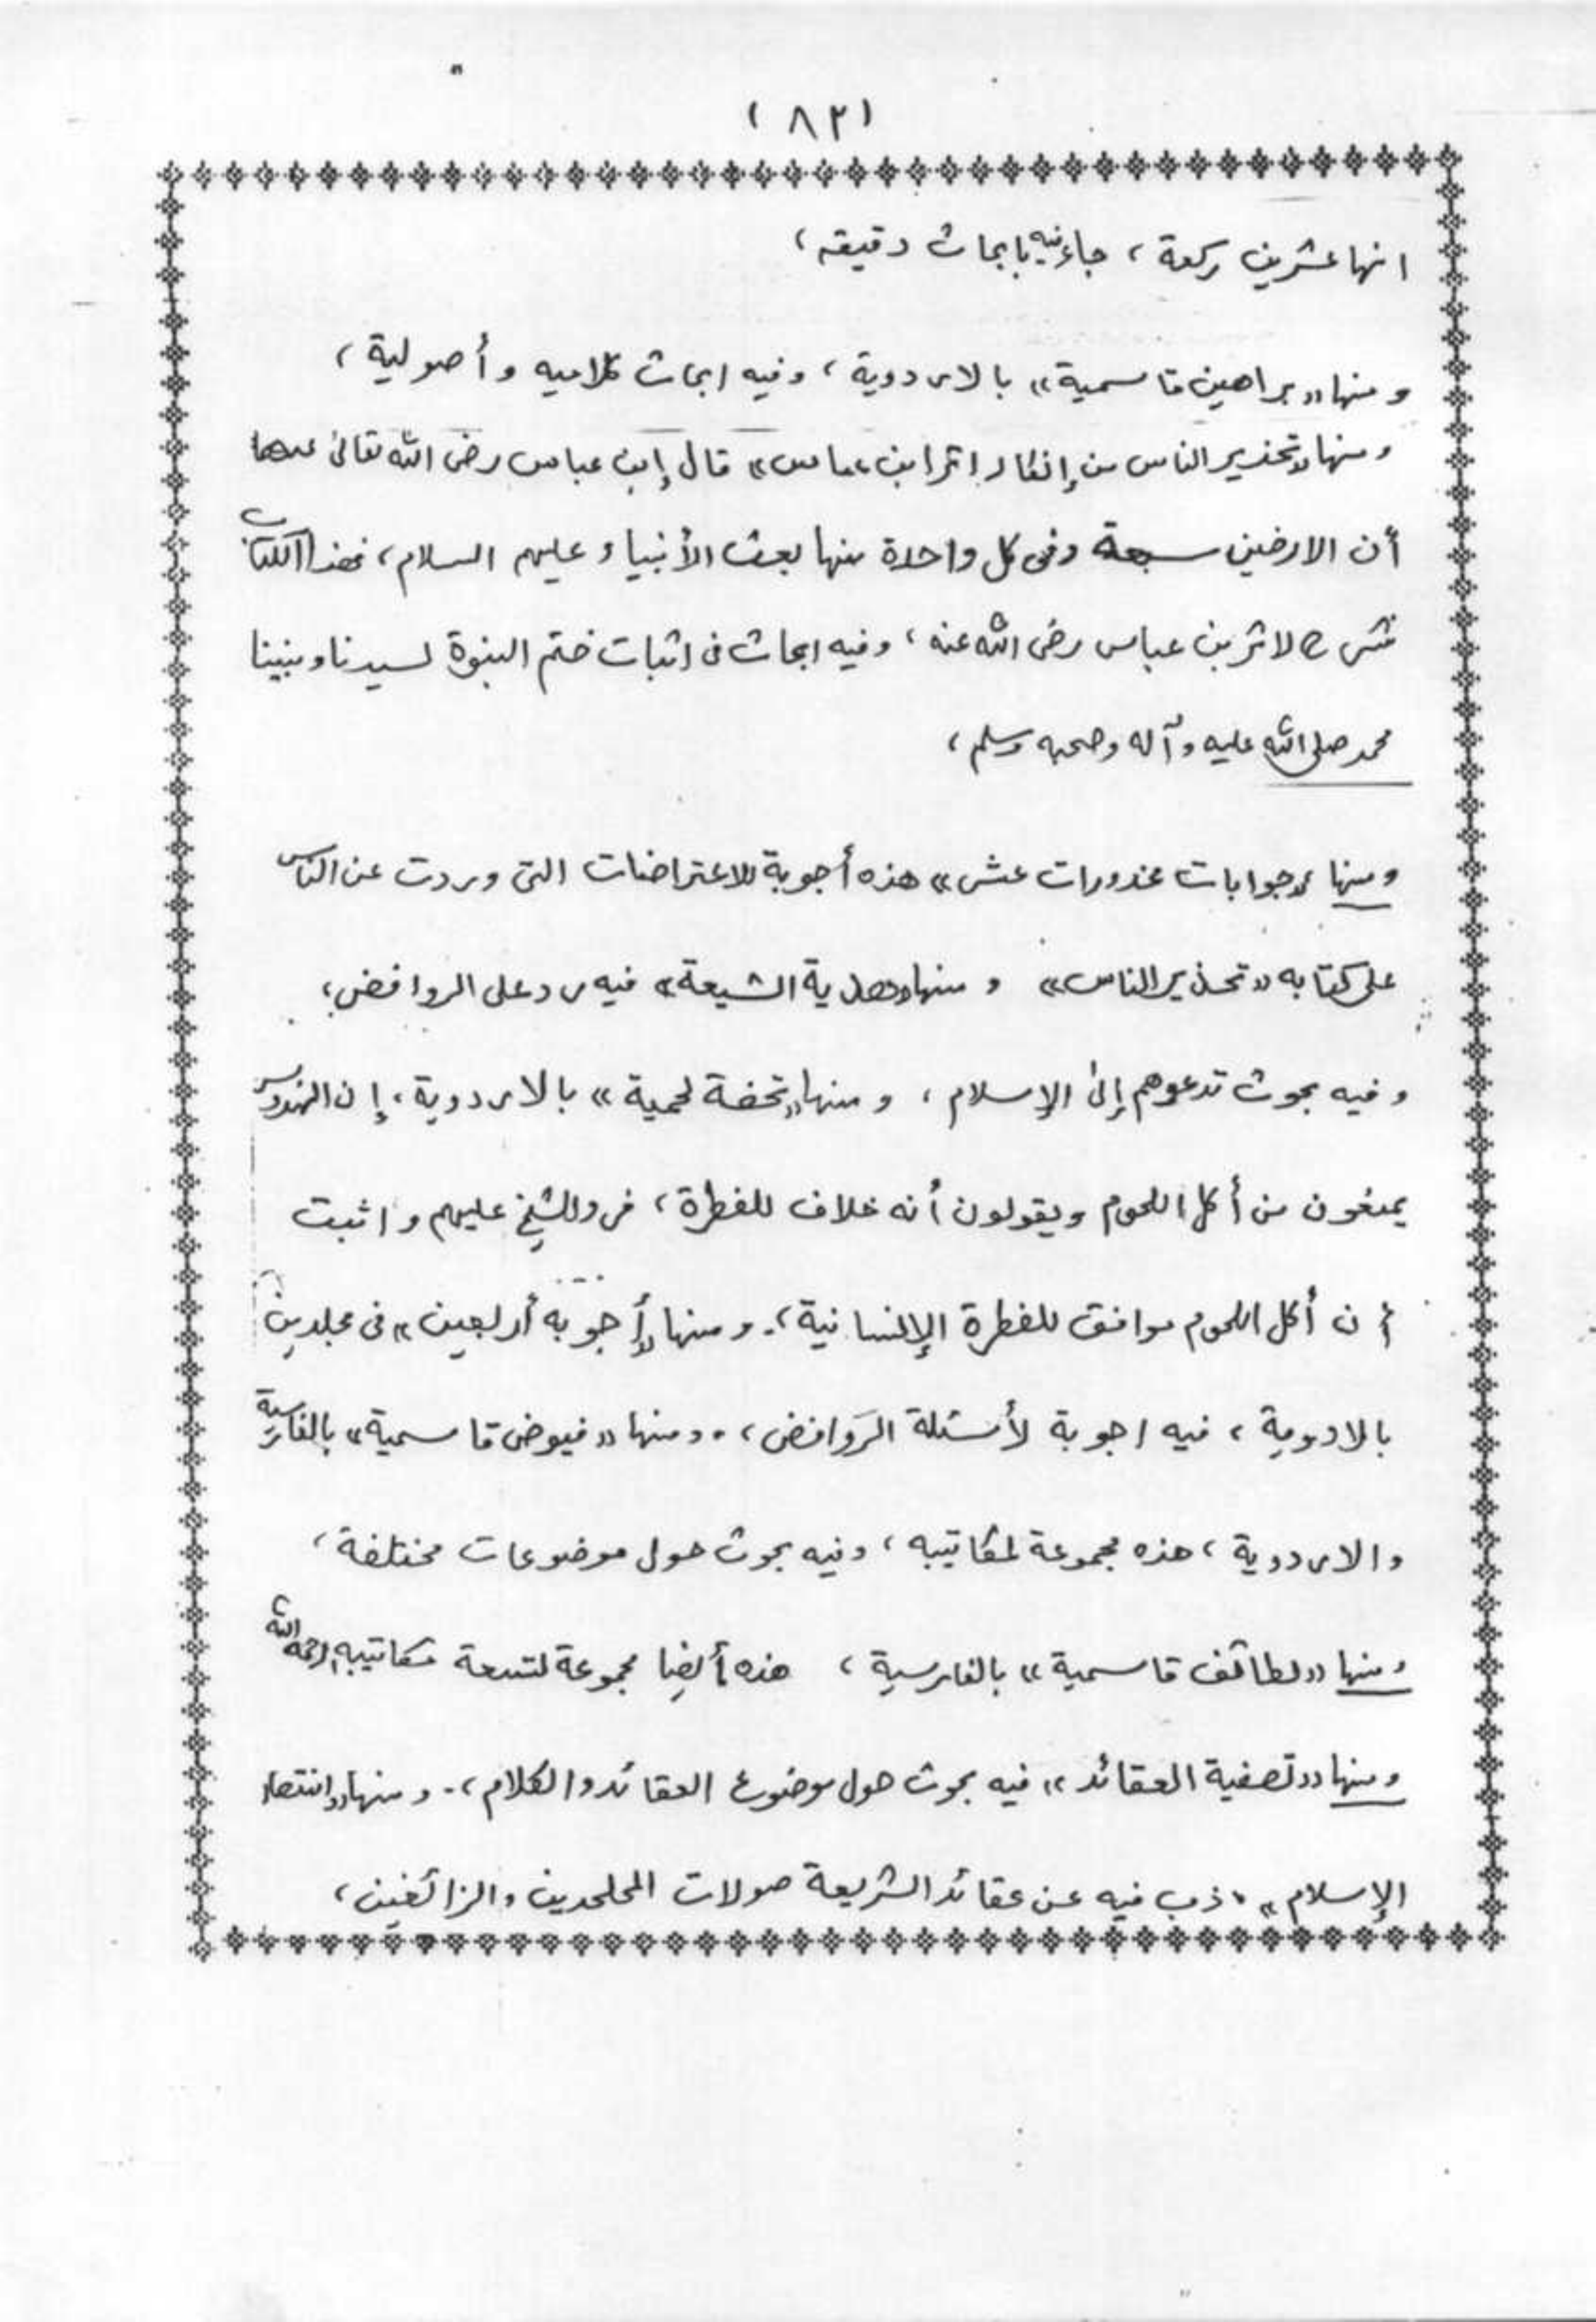 (٨٢)
انها عشرين ركعة ، جاء فيه بابحاث دقيقه ،
و منها «براهين قاسمية» بالاردوية ، وفيه ابحاث كلاميه و أصولية ،
ومنها «تحذير الناس من إنكار اثر ابن عباس» قال إبن عباس رضى الله تعالىٰ عنهما
أن الارضين سبعة وفى كل واحدة منها بعث الأنبياء عليهم السلام ، فهذا الكتاب
شرح لاثر بن عباس رضى الله عنه ، وفيه ابحاث فى اثبات ختم النبوة لسيدنا ونبينا
محمد صلى الله عليه وآله وصحبه وسلم ،
ومنها «جوابات محذورات عشر» هذه أجوبة للاعتراضات التى وردت عن الناس
على كتابه «تحذير الناس» و منها «هدية الشيعة» فيه رد على الروافض ،
و فيه بحوث تدعوهم إلىٰ الإسلام ، و منها «تحفة لحمية» بالاردوية ، إن الهندوس
يمنعون من أكل اللحوم ويقولون أنه خلاف للفطرة ، فرد الشيخ عليهم و اثبت
أن أكل اللحوم موافق للفطرة الإنسانية ، . و منها «أجوبه أربعين» فى مجلدين
بالاردوية ، فيه اجوبة لأسئلة الرَوافض ، . ومنها «فيوض قاسمية» بالفارسية
والاردوية ، هذه مجموعة لمكاتيبه ، وفيه بحوث حول موضوعات مختلفة ،
ومنها «لطائف قاسمية» بالفارسية ، هذه أيضا مجموعة لتسعة مكاتيبه رحمه الله
ومنها «تصفية العقائد» فيه بحوث حول موضوع العقائد والكلام ، . و منها «انتصار
الإسلام» ، ذب فيه عن عقائد الشريعة صولات الملحدين والزائغين ،